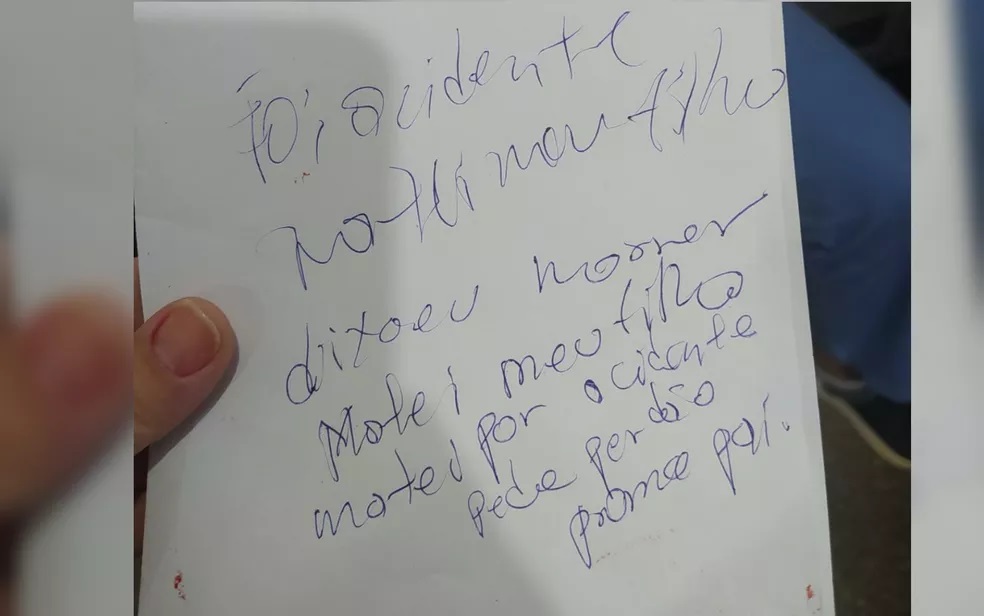 Foi, acidente
matei meu filho
dixoeu morrer
Matei meu filho
matei por acidente
pede perdão
prome pai.